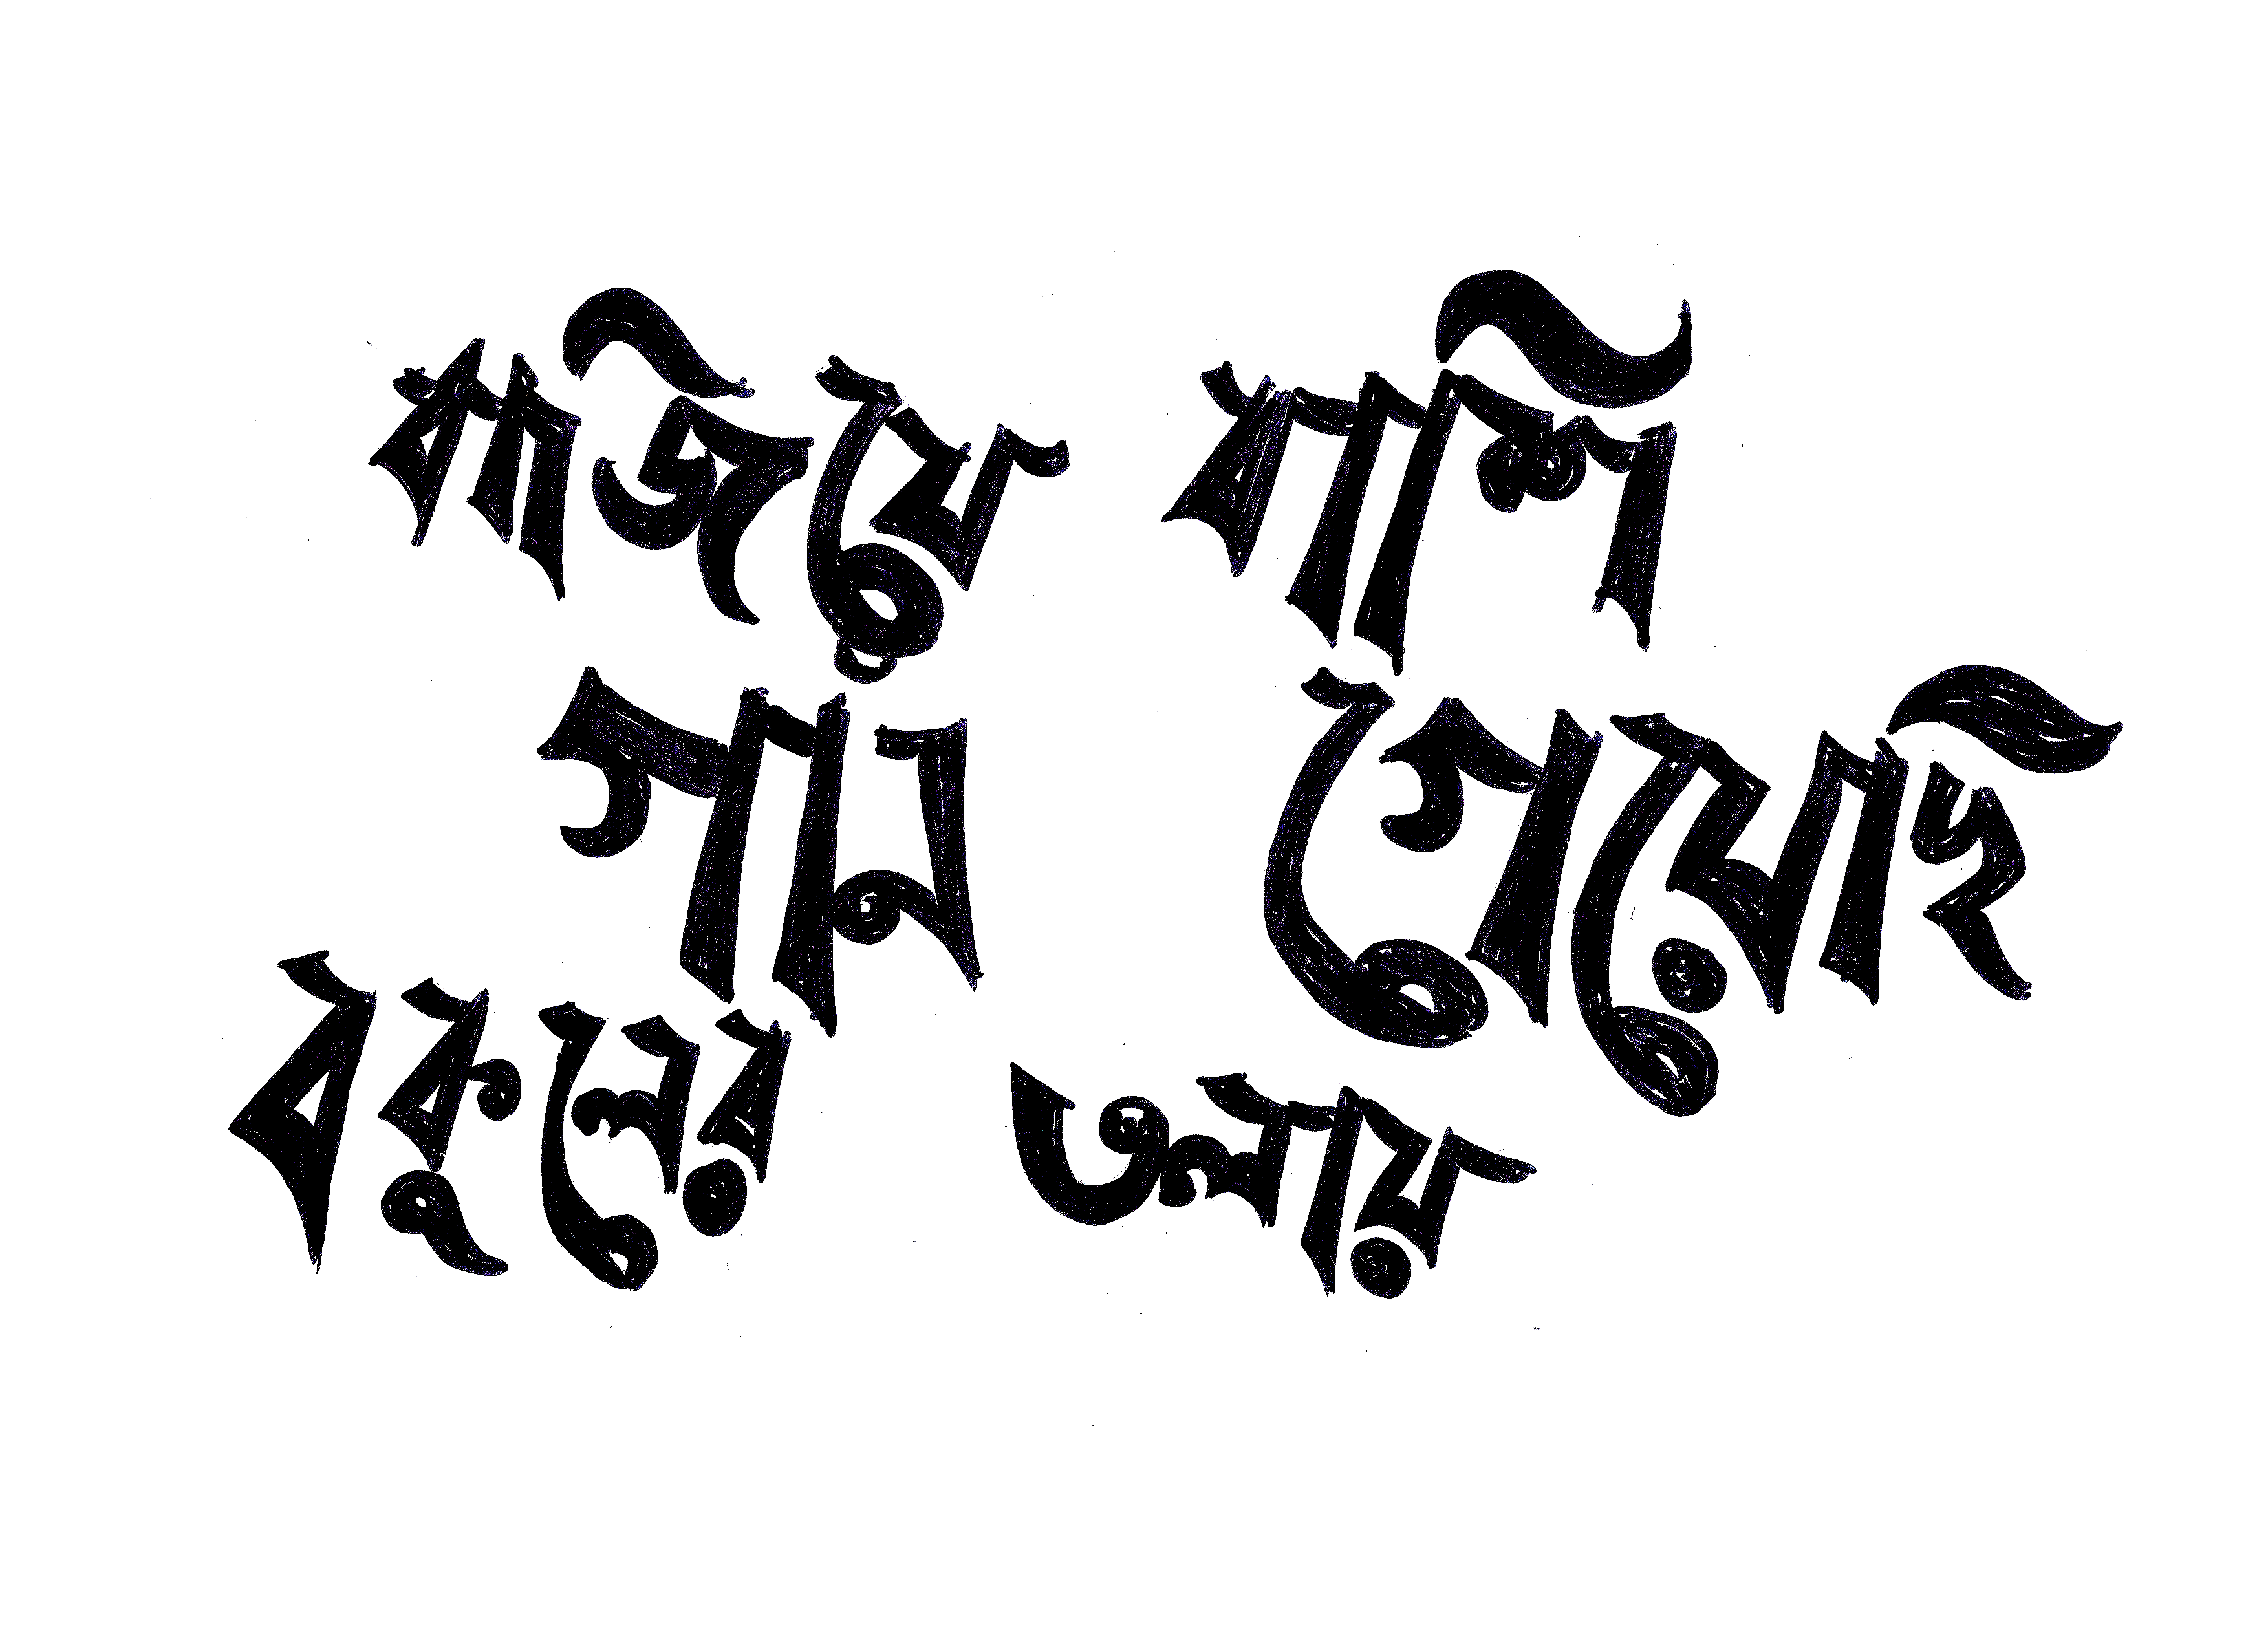 বাজিয়ে বাশি
গান গেয়েছি
বকুলের তলায়